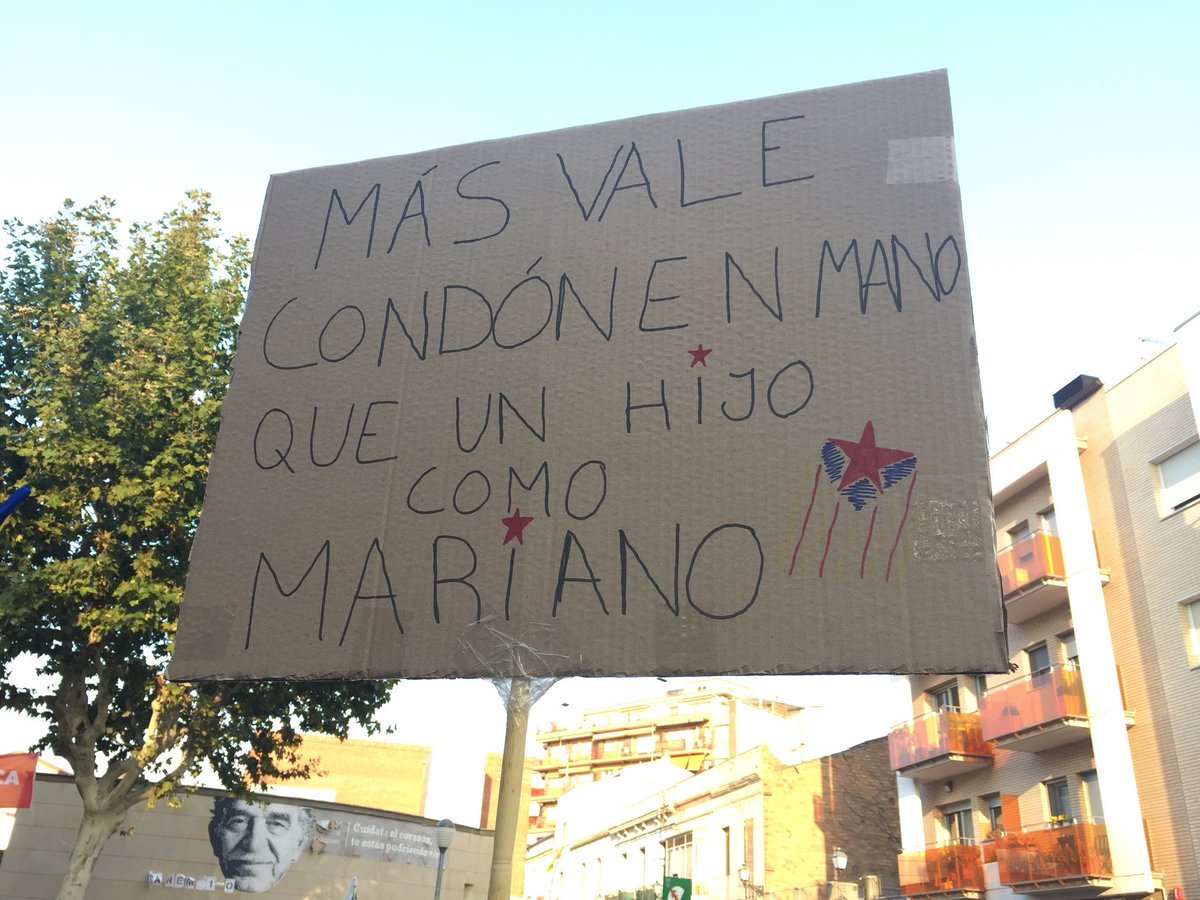 MÁS VALE
CONDÓN EN MANO
QUE UN HiJO
COMO
MARiANO
Cuídate el corazón,
te estás pudriendo vivo